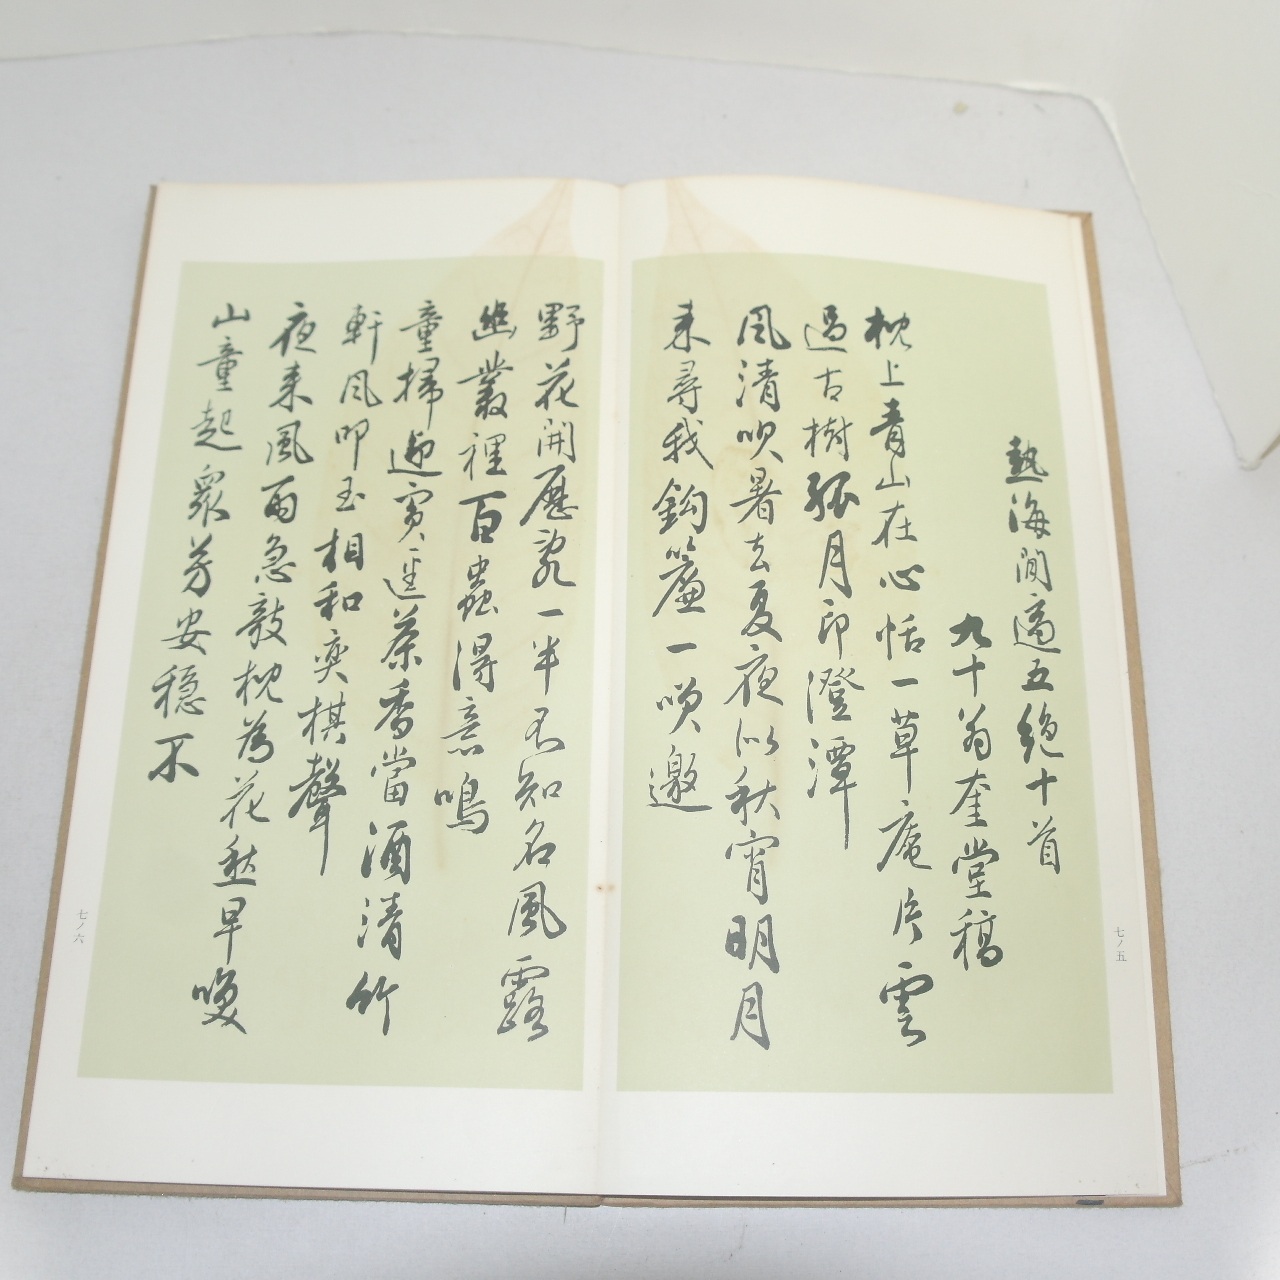 熱海閒適五絶十首
九十翁奎堂稿
枕上青山在心恬一草庵片雲
過古樹孤月印澄潭
風清吹暑去夏夜似秋宵明月
来尋我鈎簾一咲邀
七ノ五
野花開歴乱一半不知名風露
幽叢裡百蟲得意鳴
童掃迎賓逕茶香當酒清竹
軒風叩玉相和奕棋聲
夜来風雨急敲枕為花愁早喚
山童起衆芳安穏不
七ノ六